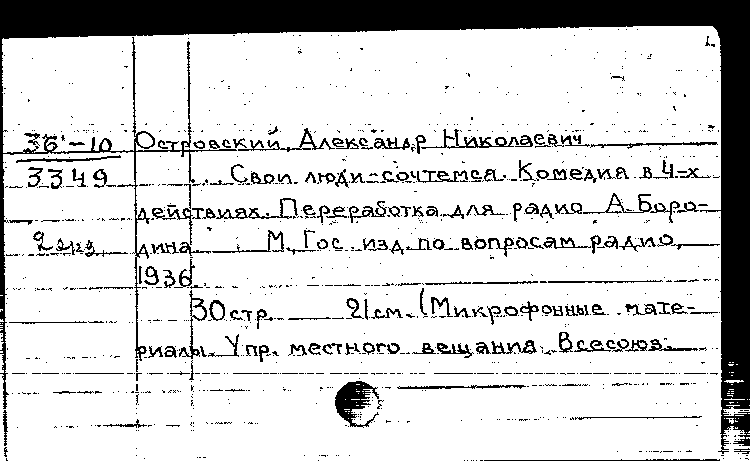 36-10 Островский, Александр Николаевич
3349 ... Свои люди-сочтемся. Комедия в 4-х
действиях. Переработка для радио А. Боро-
2 экз дина. М., Гос. изд. по вопросам радио,
1936.
30 стр. 21 см. (Микрофонные мате-
риалы. Упр. местного вещания. Всесоюз.